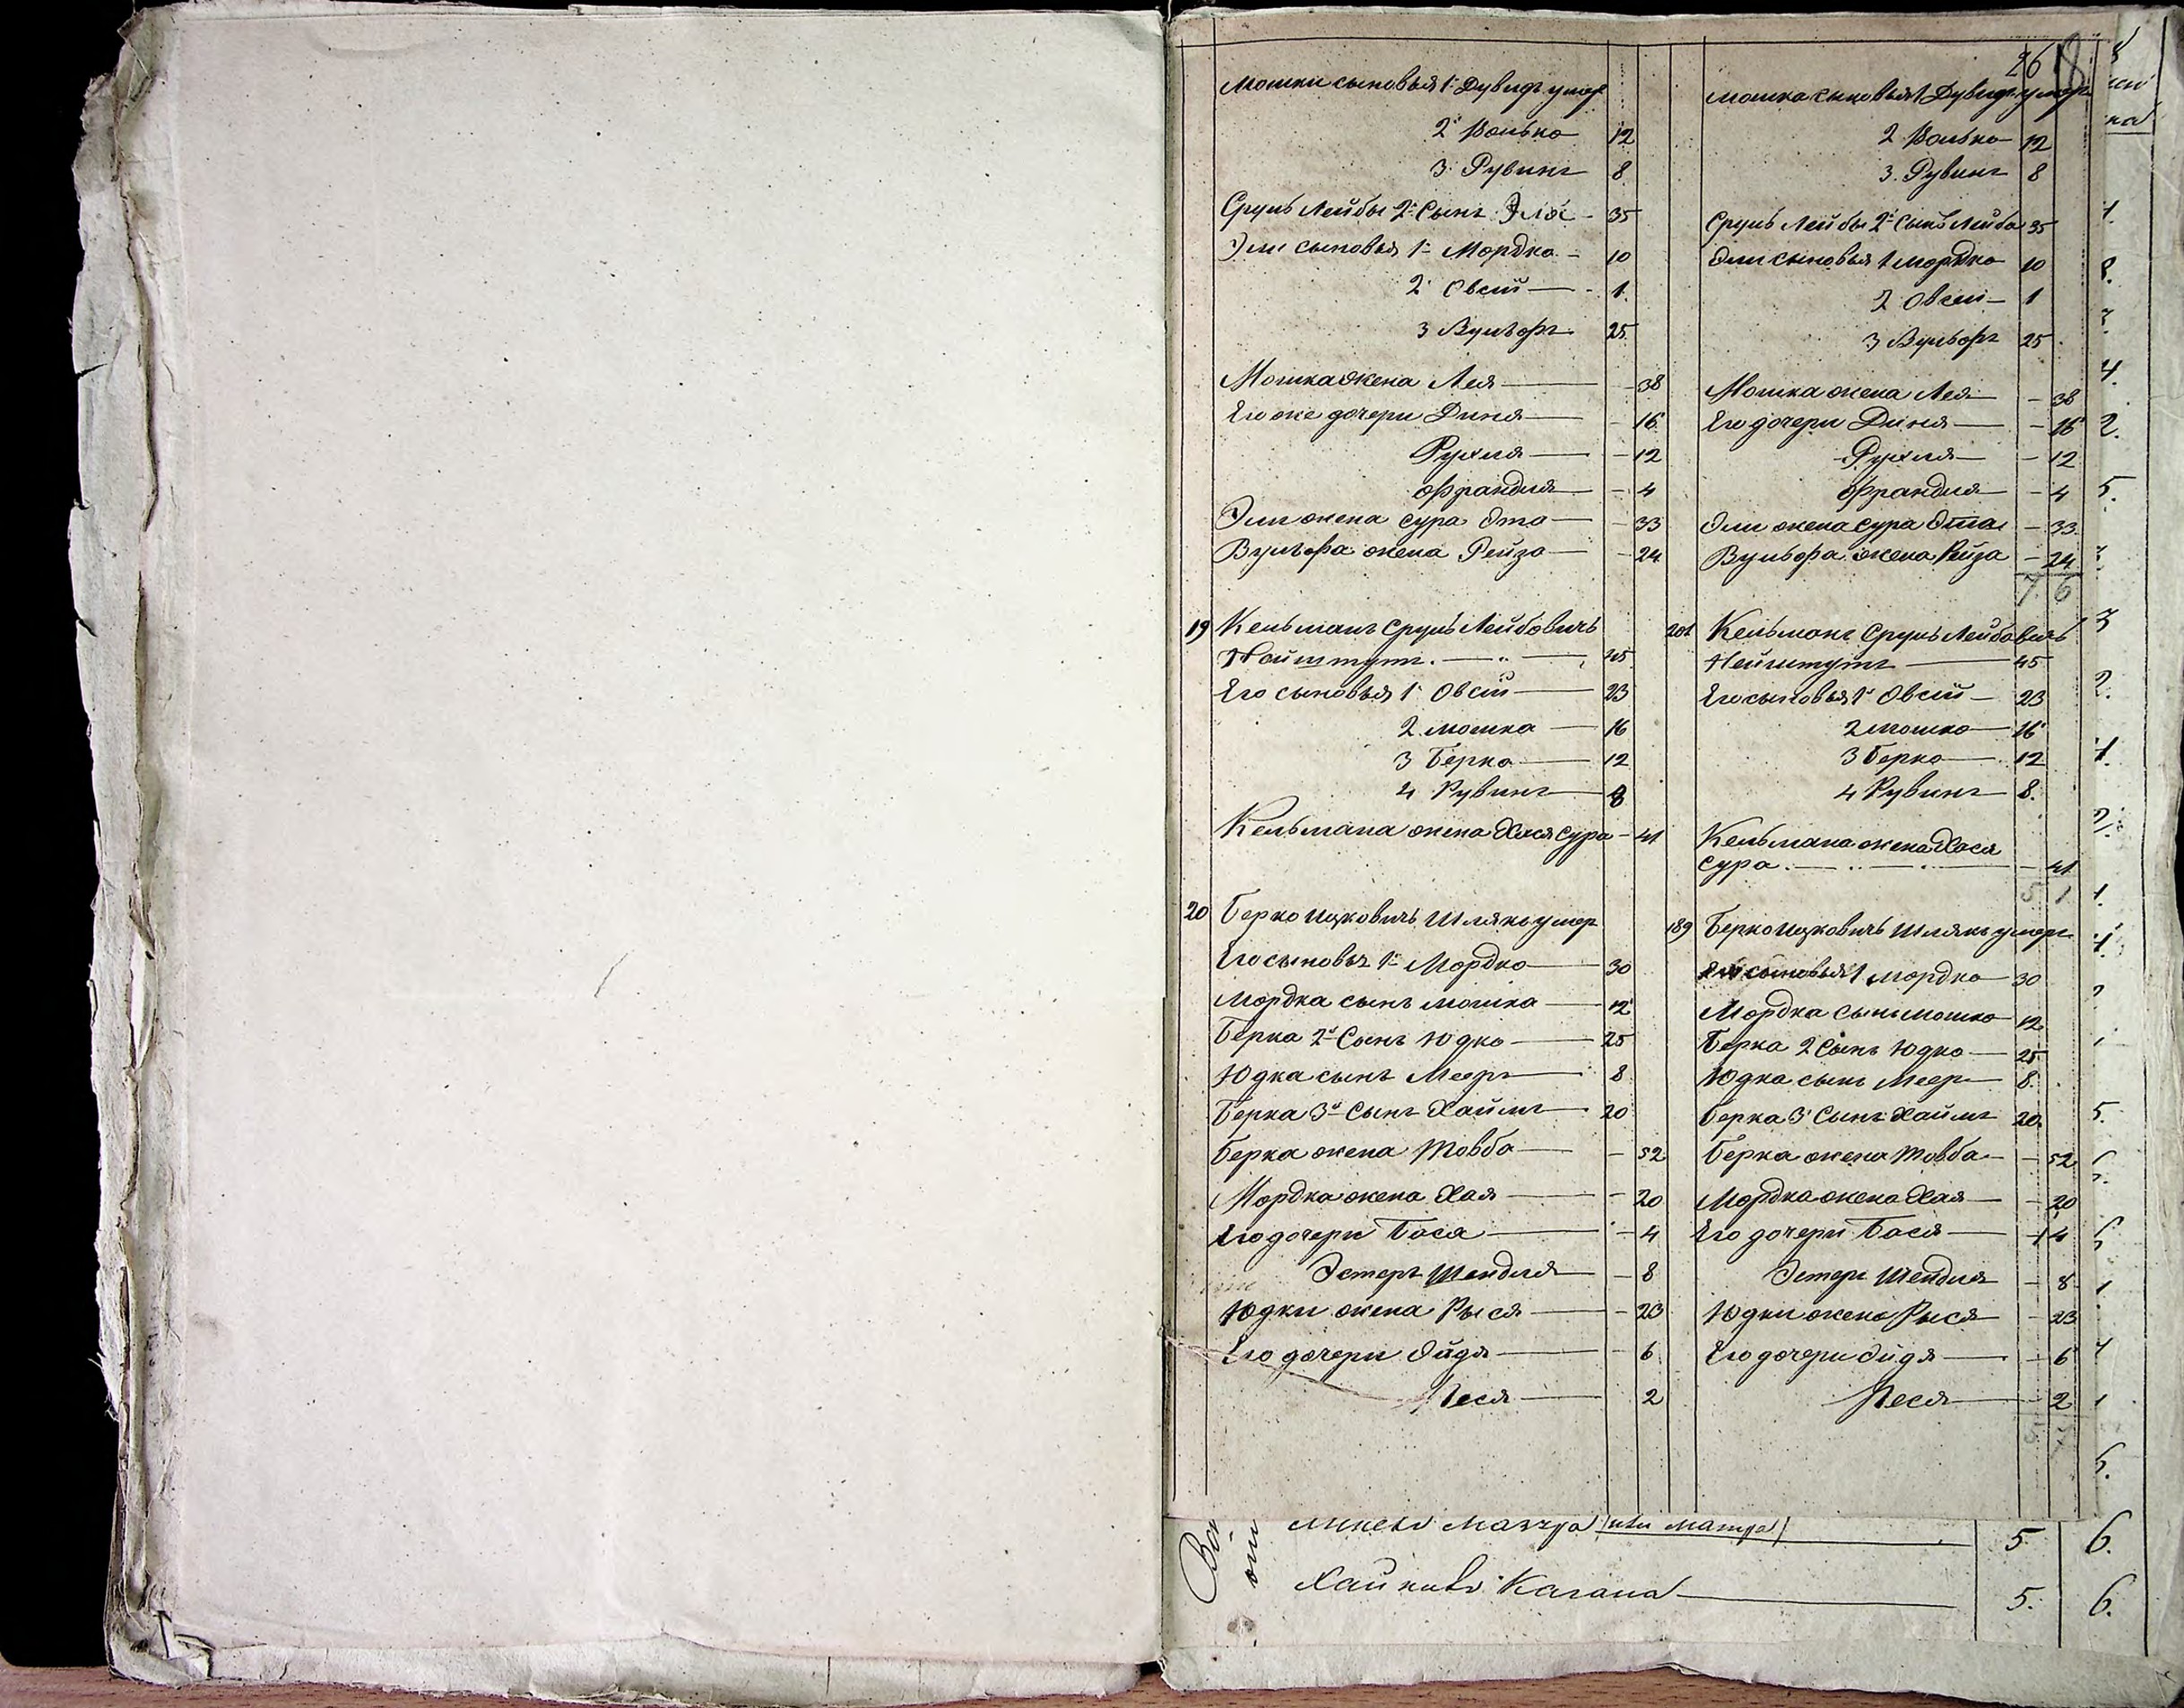 26
Мошки сыновья 1й Дувидъ умер
2й Волько 12
3. Рувинъ 8
Сруль Лейбы 2й Сынъ 35
Эли сыновья 1й Мордко 10
2й Овсiй 1
3 Вульфъ 25
Мошка жена Лея 38
Его же дочери Диня 16
Рухля 12
Франдля 4
Эли жена Сура Эта 33
Вульфа жена Рейза 24
19 Кельманъ Срулъ Лейбовичъ
Нейштутъ 45
Его сыновья 1й Овсiй 23
2 Мошка 16
3 Берко 12
4 Рувинъ 8
Кельмана жена Хася Сура 41
20 Берко Ицковичъ Шлякъ умер
Его сыновья 1й Мордко 30
Мордка сынъ Мошка 12
Берка 2й Сынъ Юдко 25
Юдка сынъ Мееръ 8
Берка 3й Сынъ Хаимъ 20
Берка жена Товба 52
Мордка жена Хая 20
Его дочери Бася 4
Эстеръ Шендля 8
Юдки жена Рыся 23
Его дочери Эйдя 6
Песя 2
Мошка сыновья 1 Дувидъ умеръ
2 Волько 12
3. Рувинъ 8
Сруль Лейбы 2й Сынъ Лейба 35
Эли сыновья 1 Мордко 10
2 Овсiй 1
3 Вульфъ 25
Мошка жена Лея 38
Его дочери Диня 16
Рухля 12
Франдля 4
Эли жена Сура Эта 33
Вульфа жена Рейза 24
7 6
201 Кельманъ Срулъ Лейбовичъ
Нейштутъ 45
Его сыновья 1й Овсiй 23
2 Мошко 16
3 Берко 12
4 Рувинъ 8.
Кельмана жена Хася
Сура 41
5 1
189 Берко Ицковичъ Шлякъ умеръ
Его сыновья 1 Мордко 30
Мордка сынъ Мошко 12
Берка 2 Сынъ Юдко 25
Юдка сынъ Меер 8.
Берка 3й Сынъ Хаимъ 20.
Берка жена Товба 52
Мордка жена Хая 20
Его дочери Бася 4
Эстеръ Шендля 8
Юдки жена Рыся 23
Его дочери Эйдя 6
Песя 2
(или Матура) 5 6.
Хаинова Кагана 5. 6.